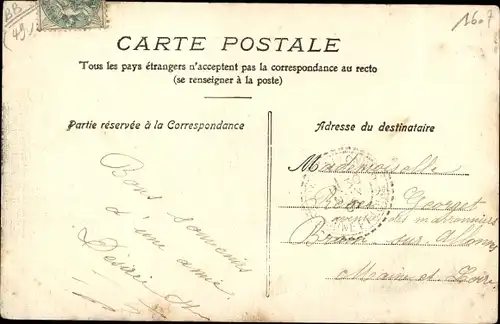 BB
49
1607
CARTE POSTALE
Tous les pays étrangers n'acceptent pas la correspondance au recto
(se renseigner à la poste)
Partie réservée à la Correspondance
Adresse du destinataire
Bons souvenirs
d'une amie
Désirée
Mademoiselle
Georget
avenue des marronniers
sur Allonnes
Maine et Loire